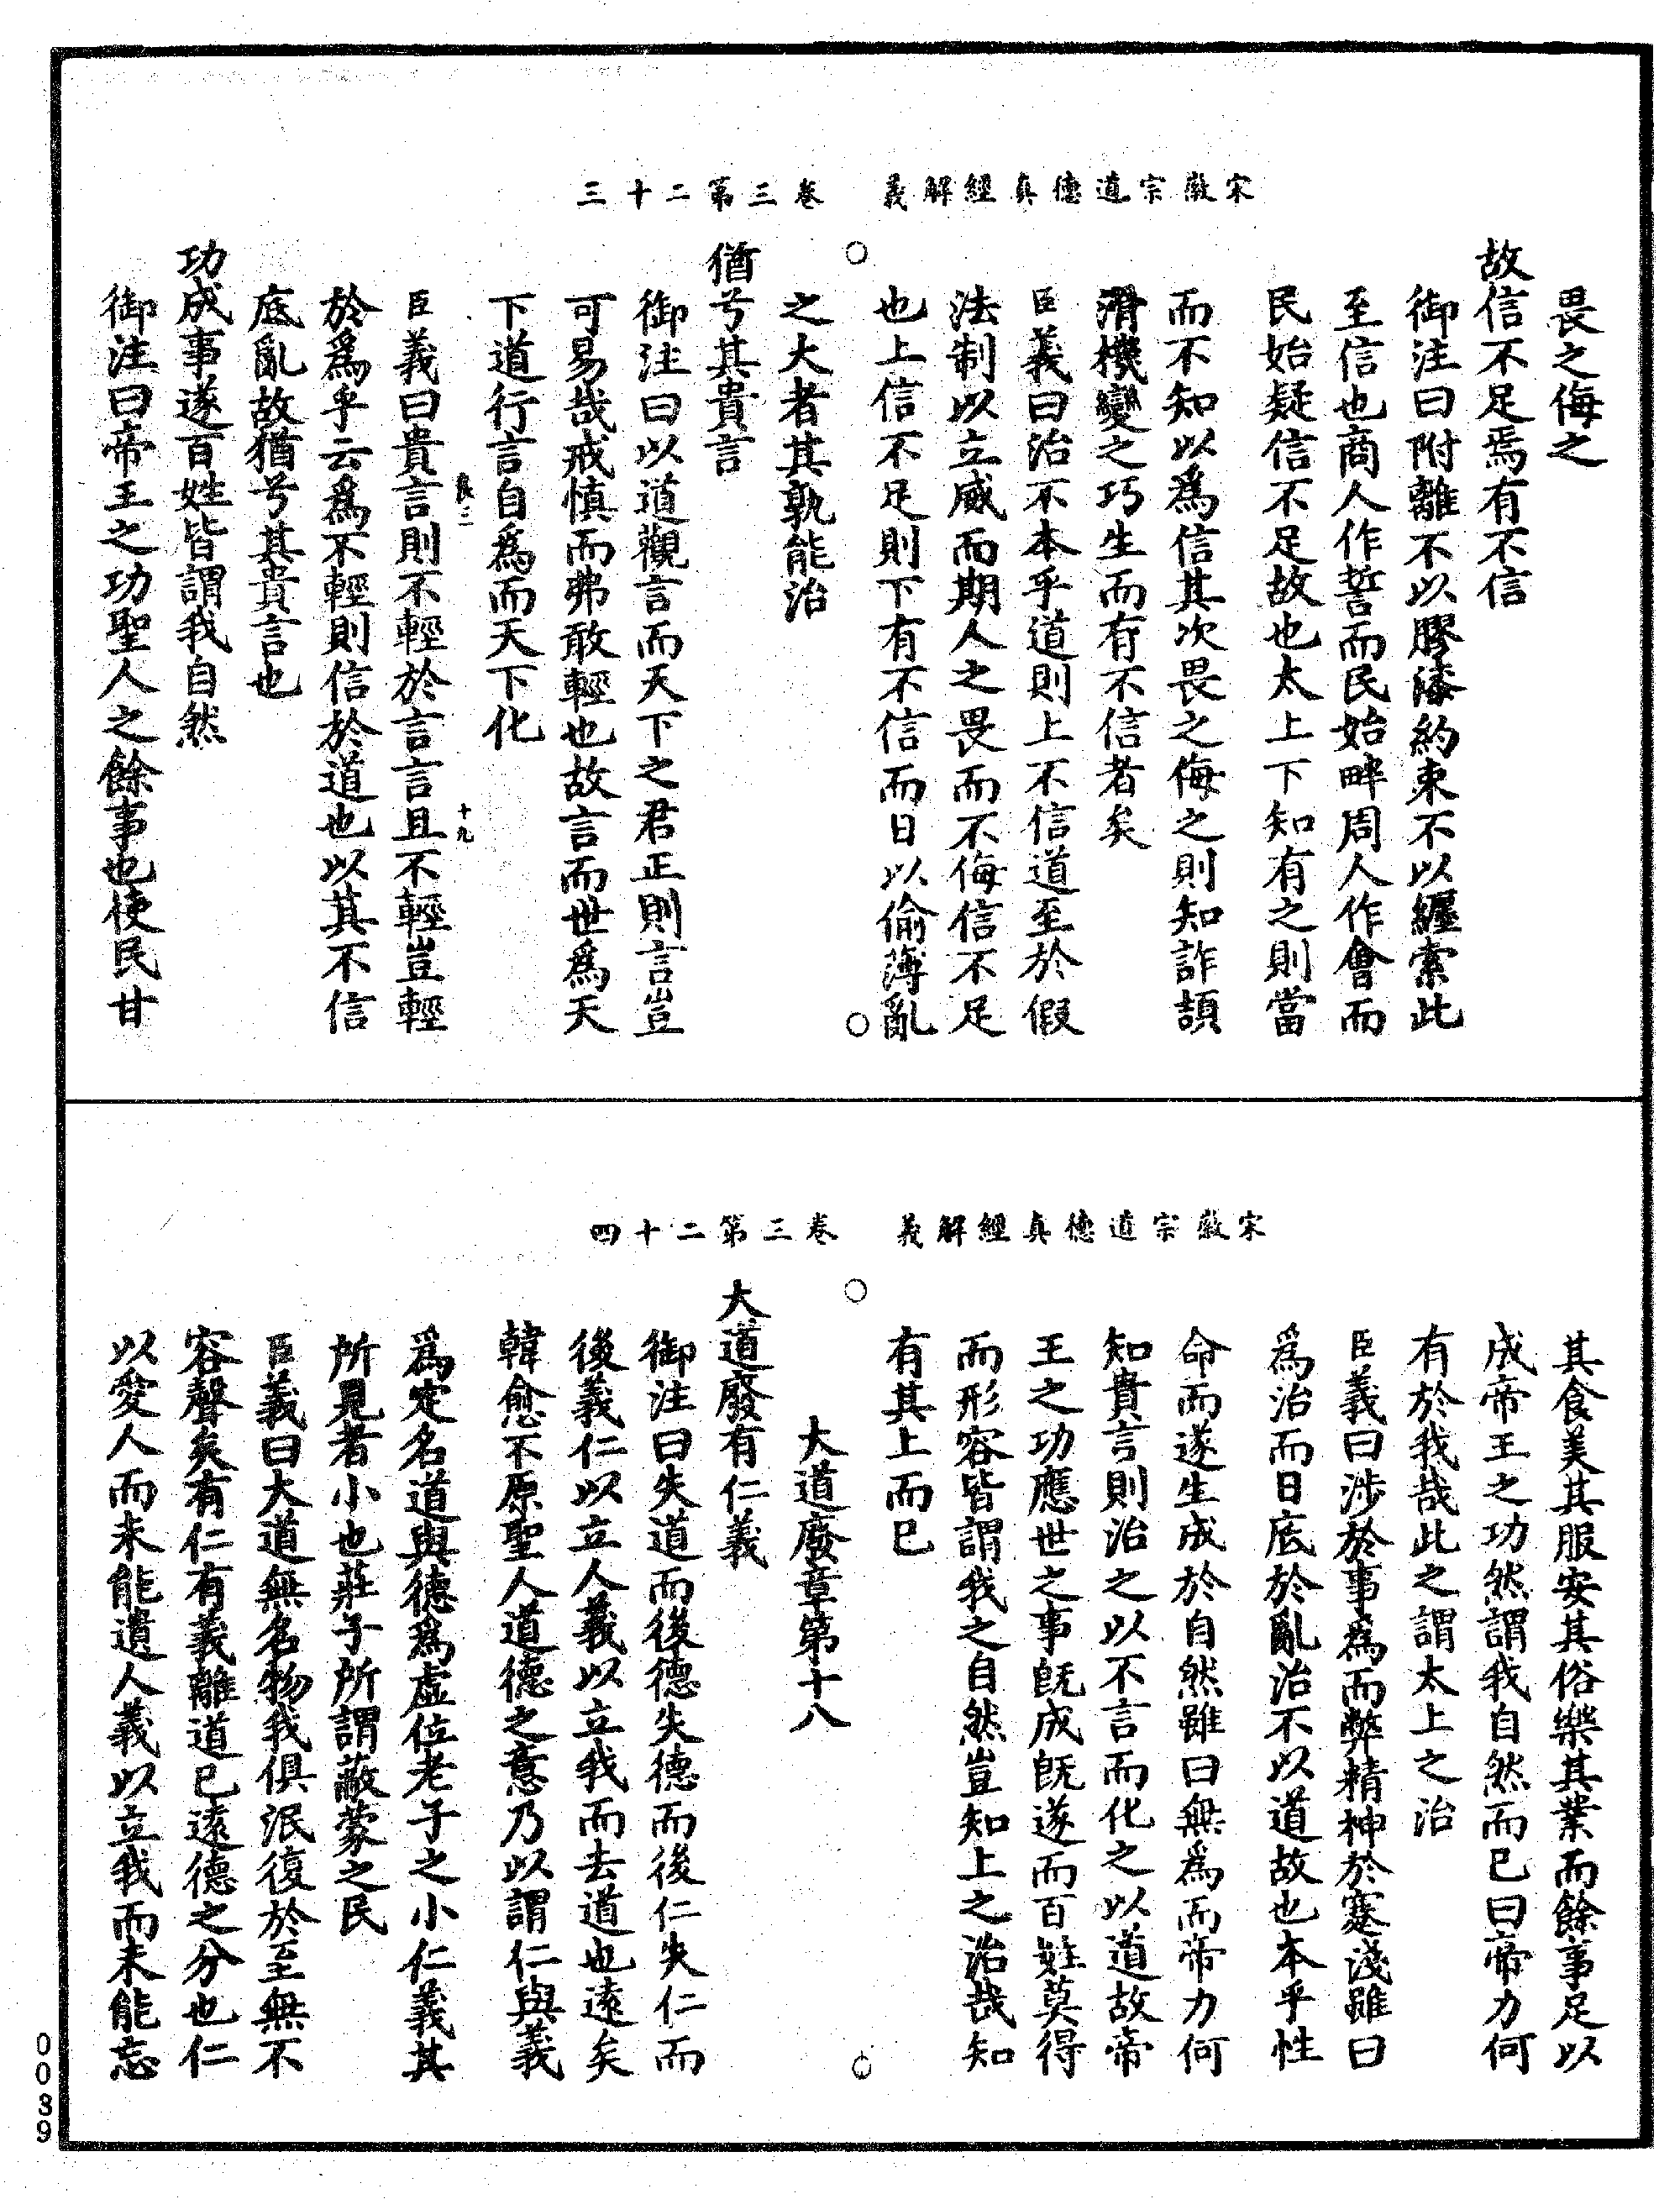 宋徽宗道德真經解義　卷三第二十三
畏之侮之
故信不足焉有不信
御注曰附離不以膠漆約束不以纆索此
至信也商人作誓而民始畔周人作會而
民始疑信不足故也太上下知有之則當
而不知以爲信其次畏之侮之則知詐頡
滑機變之巧生而有不信者矣
臣義曰治不本乎道則上不信道至於假
法制以立威而期人之畏而不侮信不足
也上信不足則下有不信而日以偷薄亂
之大者其孰能治
猶兮其貴言
御注曰以道觀言而天下之君正則言豈
可易哉戒慎而弗敢輕也故言而世爲天
下道行言自爲而天下化
良三　十九
臣義曰貴言則不輕於言言且不輕豈輕
於爲乎云爲不輕則信於道也以其不信
底亂故猶兮其貴言也
功成事遂百姓皆謂我自然
御注曰帝王之功聖人之餘事也使民甘
宋徽宗道德真經解義　卷三第二十四
其食美其服安其俗樂其業而餘事足以
成帝王之功然謂我自然而已曰帝力何
有於我哉此之謂太上之治
臣義曰涉於事爲而弊精神於蹇淺雖曰
爲治而日底於亂治不以道故也本乎性
命而遂生成於自然雖曰無爲而帝力何
知貴言則治之以不言而化之以道故帝
王之功應世之事旣成旣遂而百姓莫得
而形容皆謂我之自然豈知上之治哉知
有其上而已
大道廢章第十八
大道廢有仁義
御注曰失道而後德失德而後仁失仁而
後義仁以立人義以立我而去道也遠矣
韓愈不原聖人道德之意乃以謂仁與義
爲定名道與德爲虛位老子之小仁義其
所見者小也莊子所謂蔽蒙之民
臣義曰大道無名物我俱泯復於至無不
容聲矣有仁有義離道已遠德之分也仁
以愛人而未能遺人義以立我而未能忘
0039